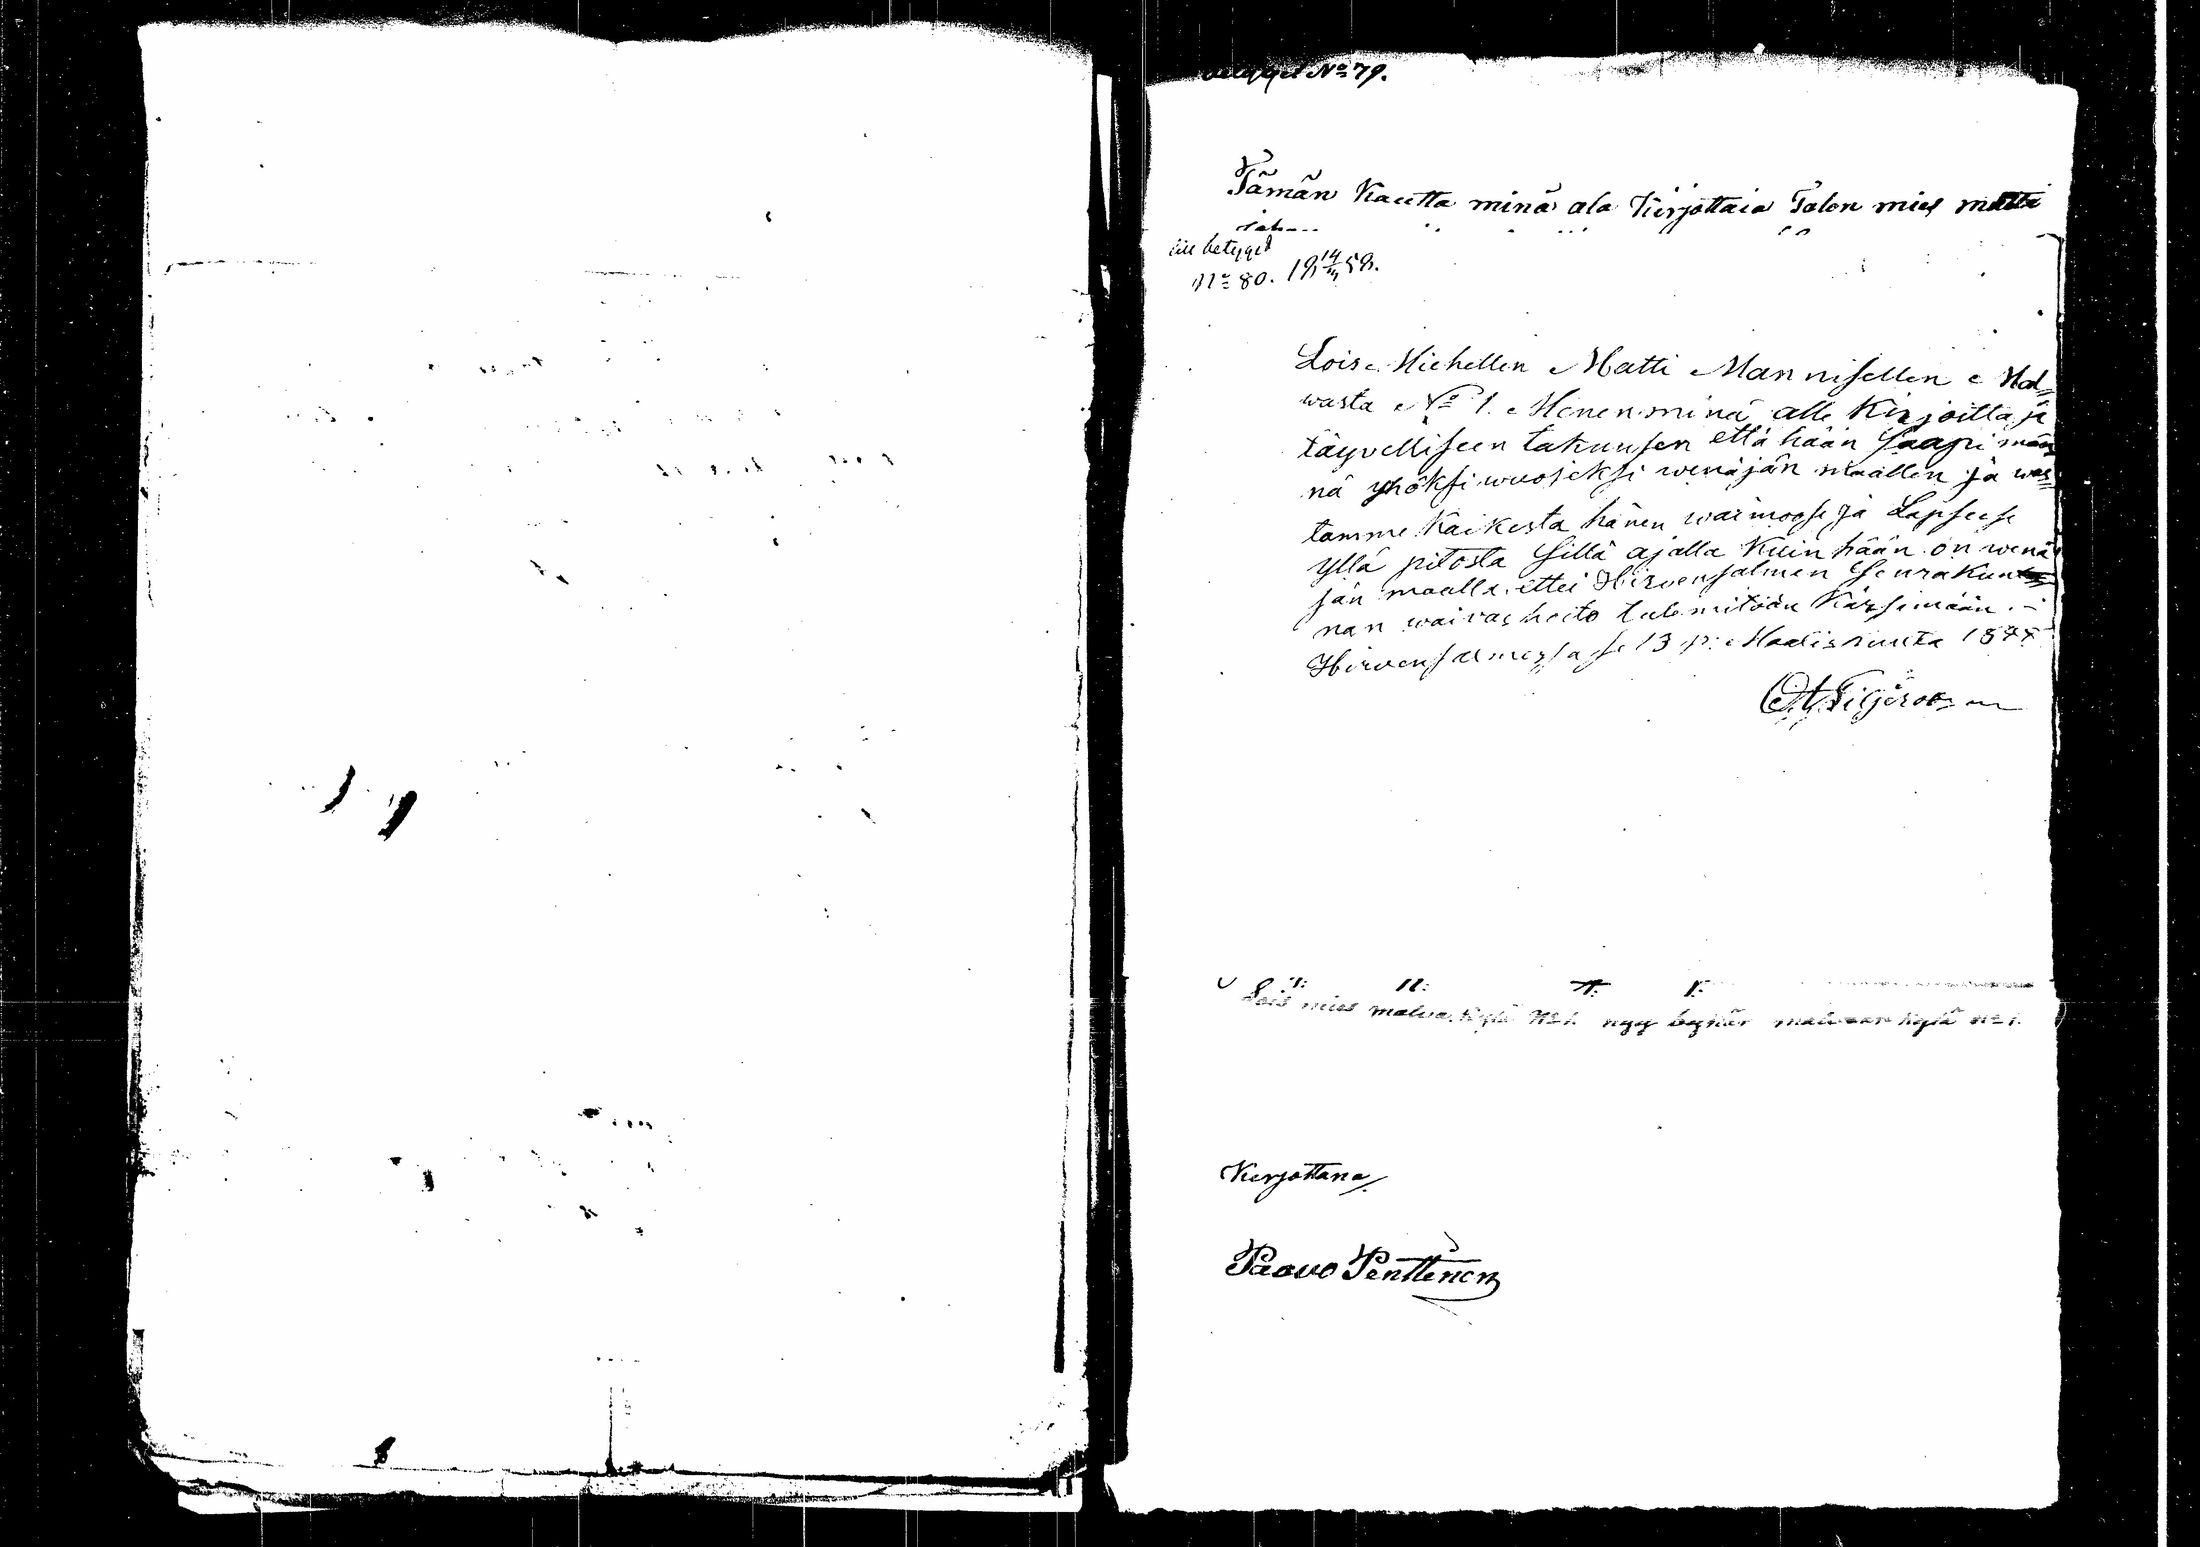 betyget No 79.
Tämän Kautta minä ala Kirjottaia Talon mies matti
till betyget
No 80. 18 14/3 58.
Lois Miehellen Matti Mannisellen Mal=
wasta No 1. Menen minä alle Kirjoittaja
täyvelliseen takuusen että hään saapi män=
nä yhöksi wuoseksi wenäjän maallen ja was=
tamme Kaikesta hänen waimoose ja Lapseese
yllä pitosta sillä ajalla Kuin hään on wenä
jän maalla ettei Hirvensalmen seurakun=
nan waivashoito tule mitään Kärsimään.
Hirvensalmessa se 13 p: Maaliskuuta
Lois mies malva Kylä No 1. nyy malvaan Kylä No 1.
Kirjottana
Paavo Penttenen